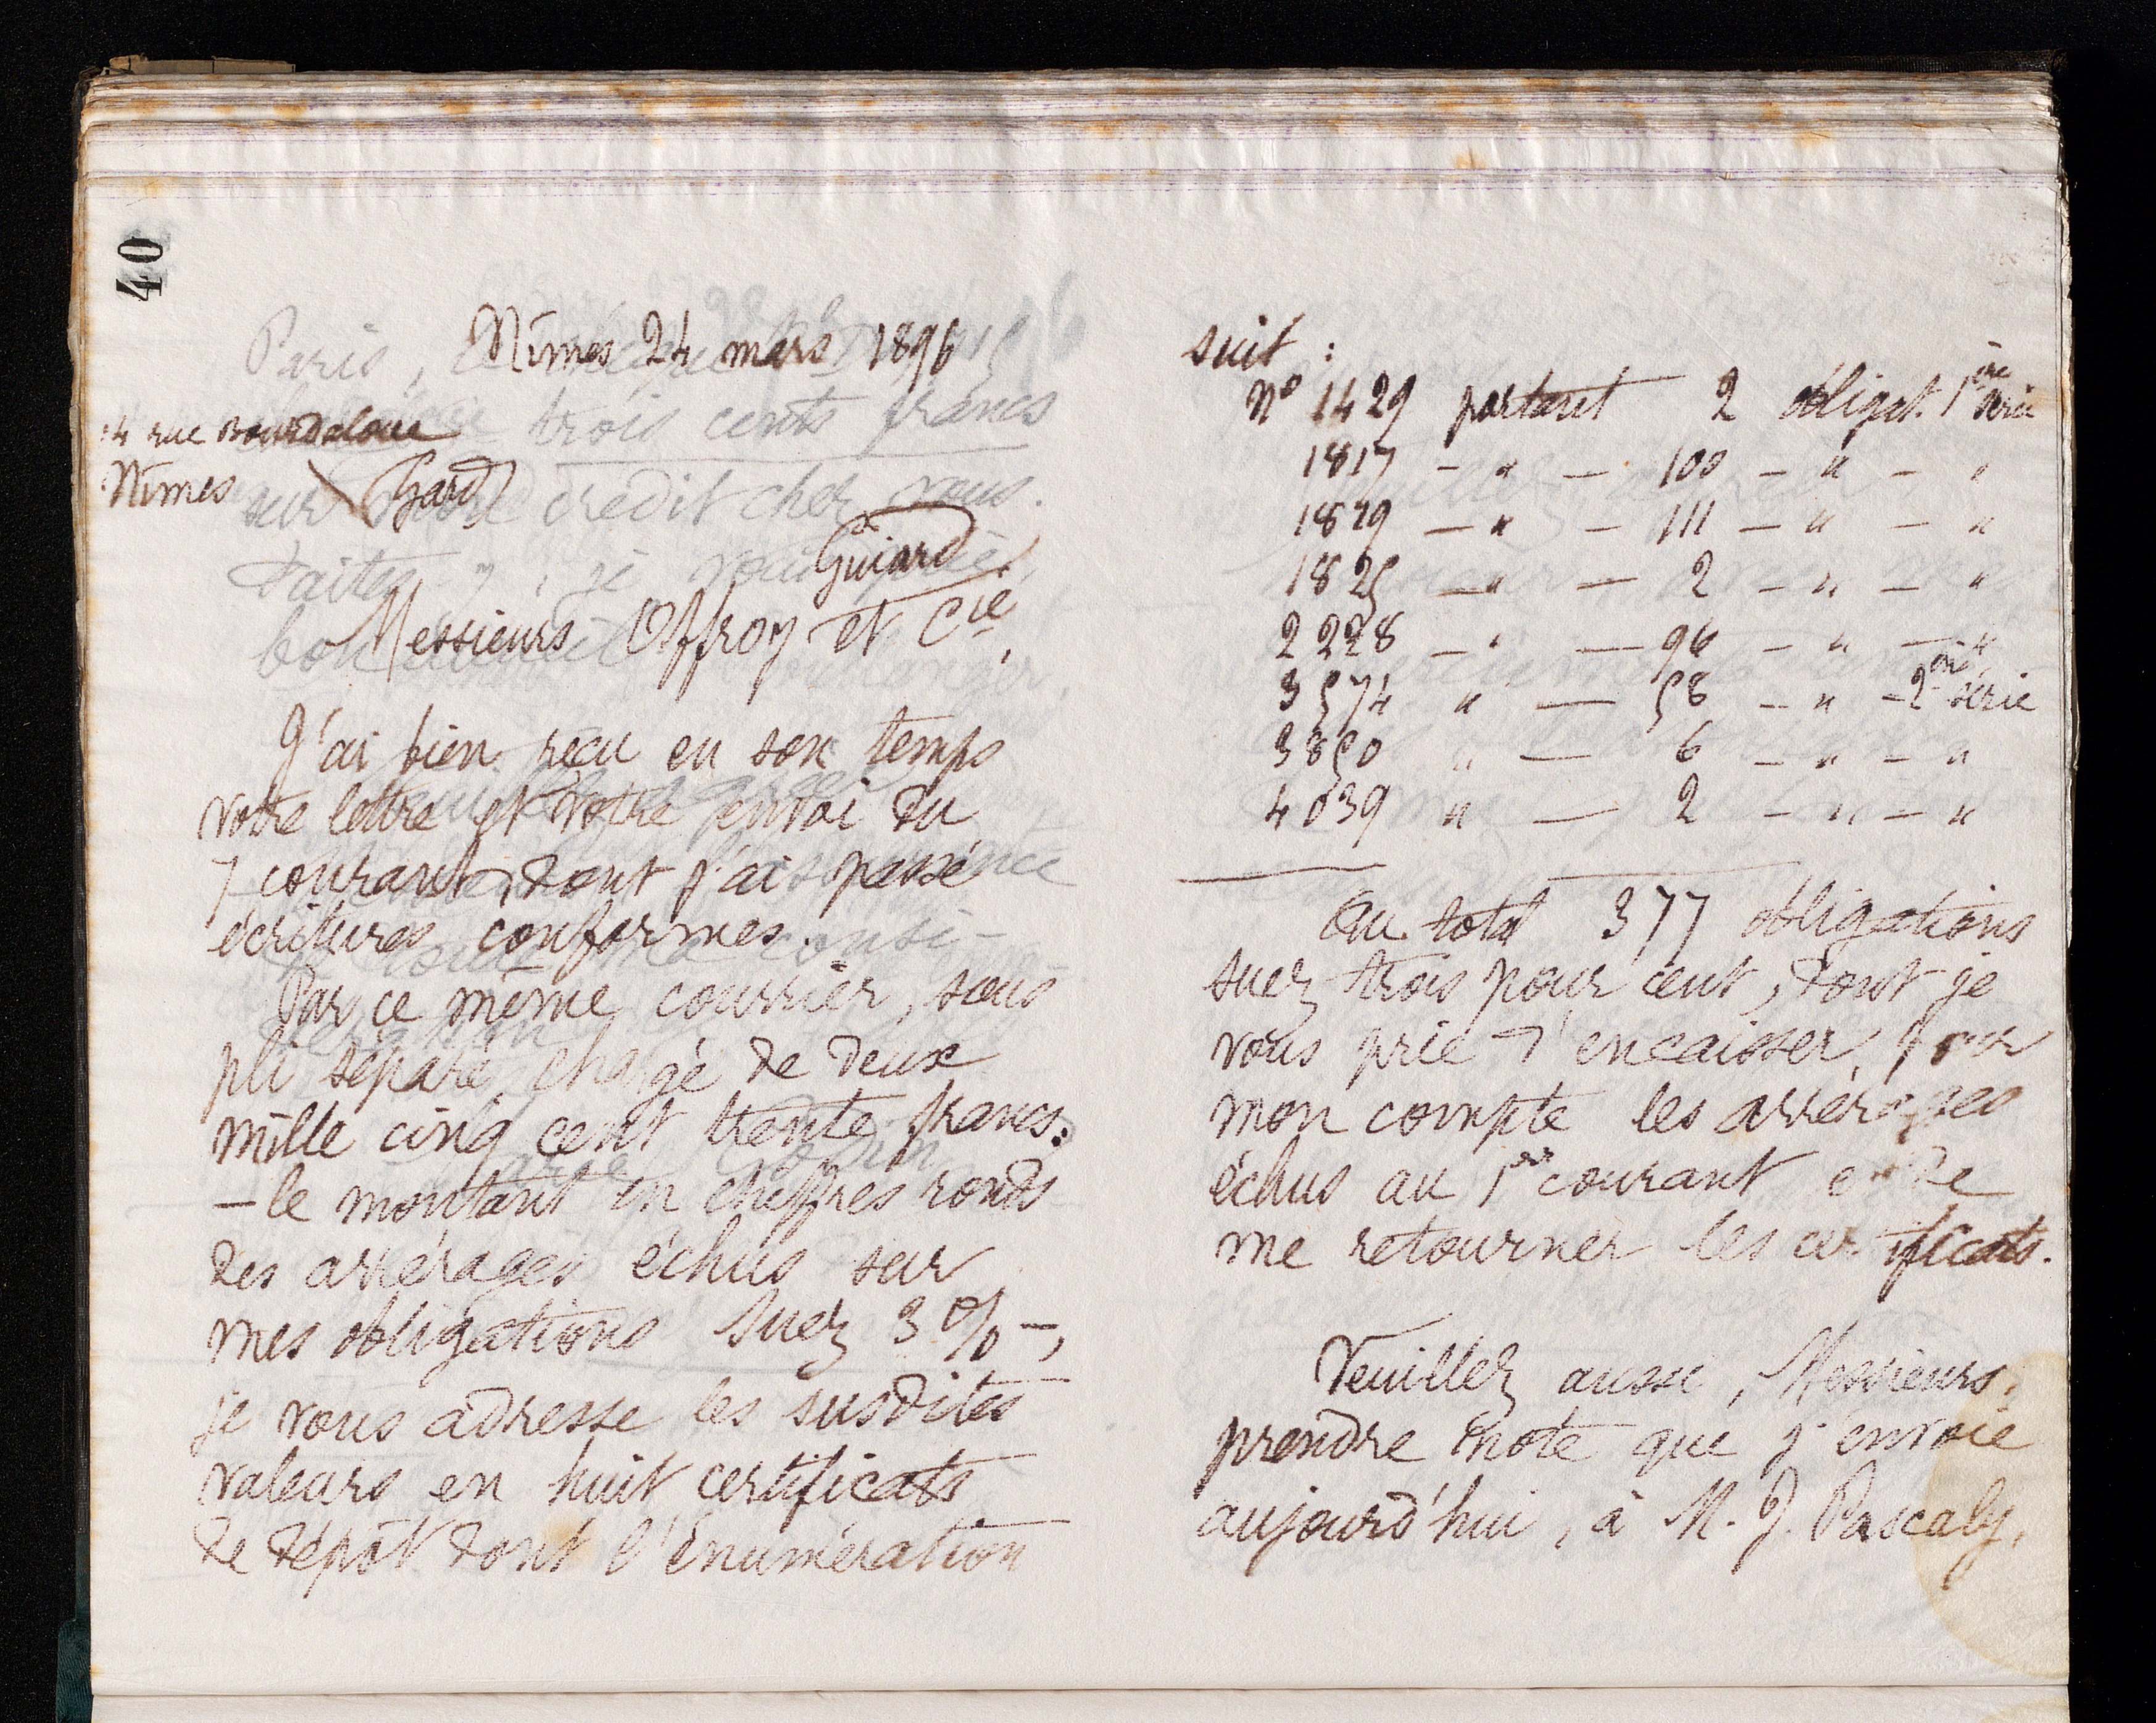 40
Nîmes 24 mars 1896
14 rue Bourdaloue
Nîmes (Gard)
Guiard
Messieurs Offroy et Cie,
J'ai bien reçu en son temps
votre lettre et votre envoi du
7 courant, dont j'ai passé
écritures conformes.
Par ce même courrier, sous
pli séparé, chargé de deux
mille cinq cent trente francs.
— le montant en chiffres ronds
des arrérages échus sur
mes obligations Suez 3 % —,
je vous adresse les susdites
valeurs en huit certificats
de dépôt dont l'énumération
suit :
No 1429 portant 2 obligat. 1ère série
1817 — " — 100 — " — "
1829 — " — 111 — " — "
1825 — " — 2 — " — "
2228 — " — 96 — " — "
3574 " — 58 — " — 2me série
3850 " — 6 — " — "
4039 " — 2 — " — "
Au total 377 obligations
suez trois pour cent, dont je
vous prie d'encaisser, pour
mon compte les arrérages
échus au 1er courant et de
me retourner les certificats.
Veuillez aussi, Messieurs,
prendre note que j'envoie
aujourd'hui, à M. J. Pascaly,